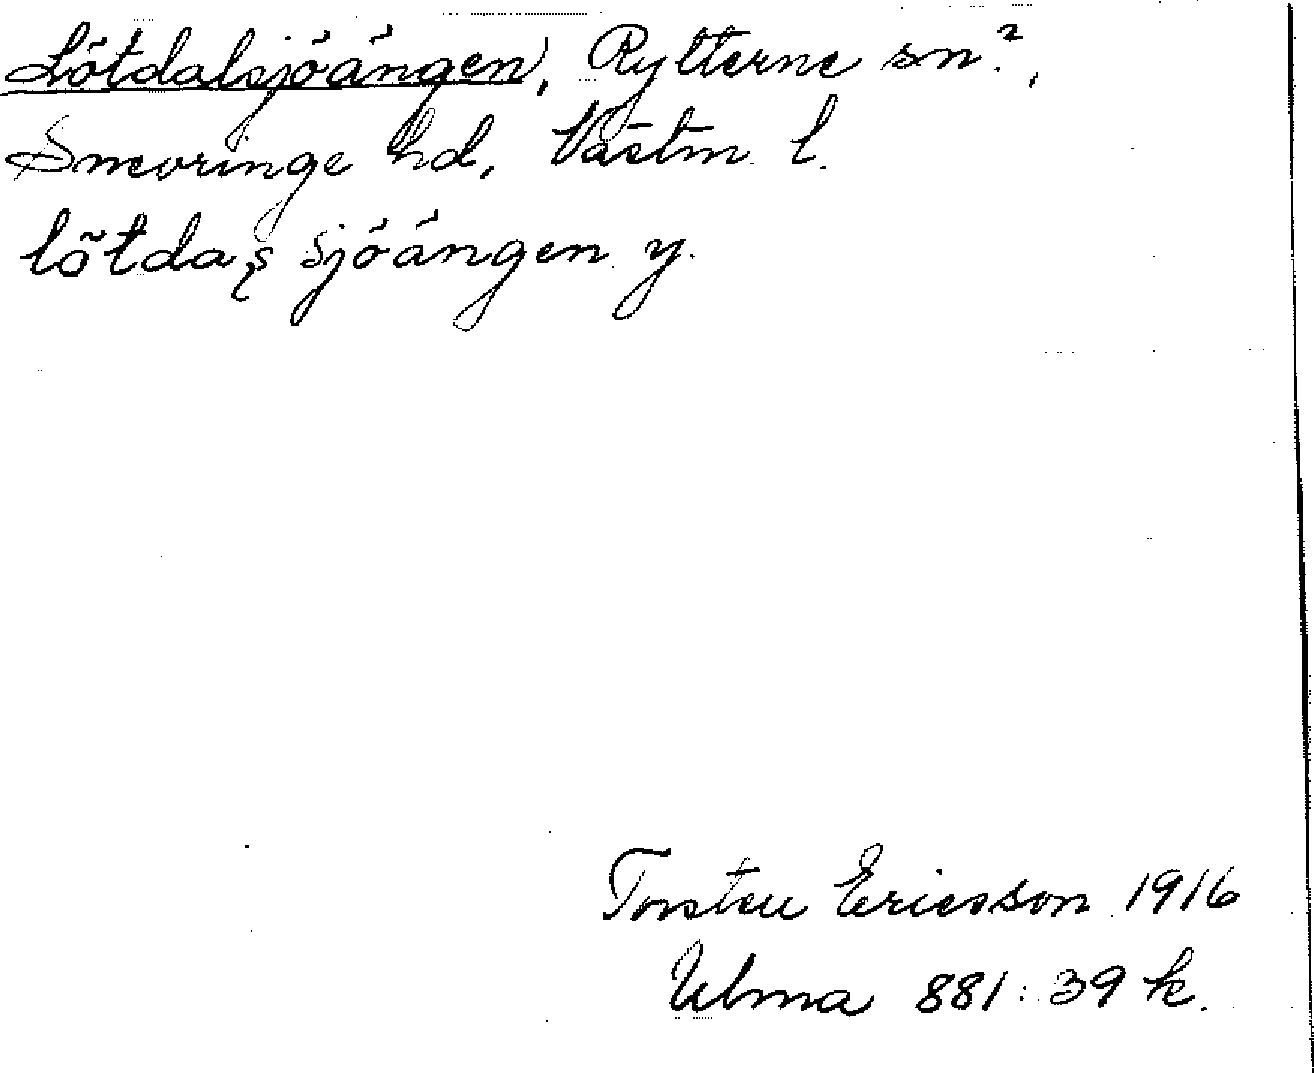 Lötdalsjöängen, Rytterne sn?,
Snevringe hd, Västm. l.
lötdas sjöängen y.
Torsten Ericsson 1916
Ulma 881:39 k.